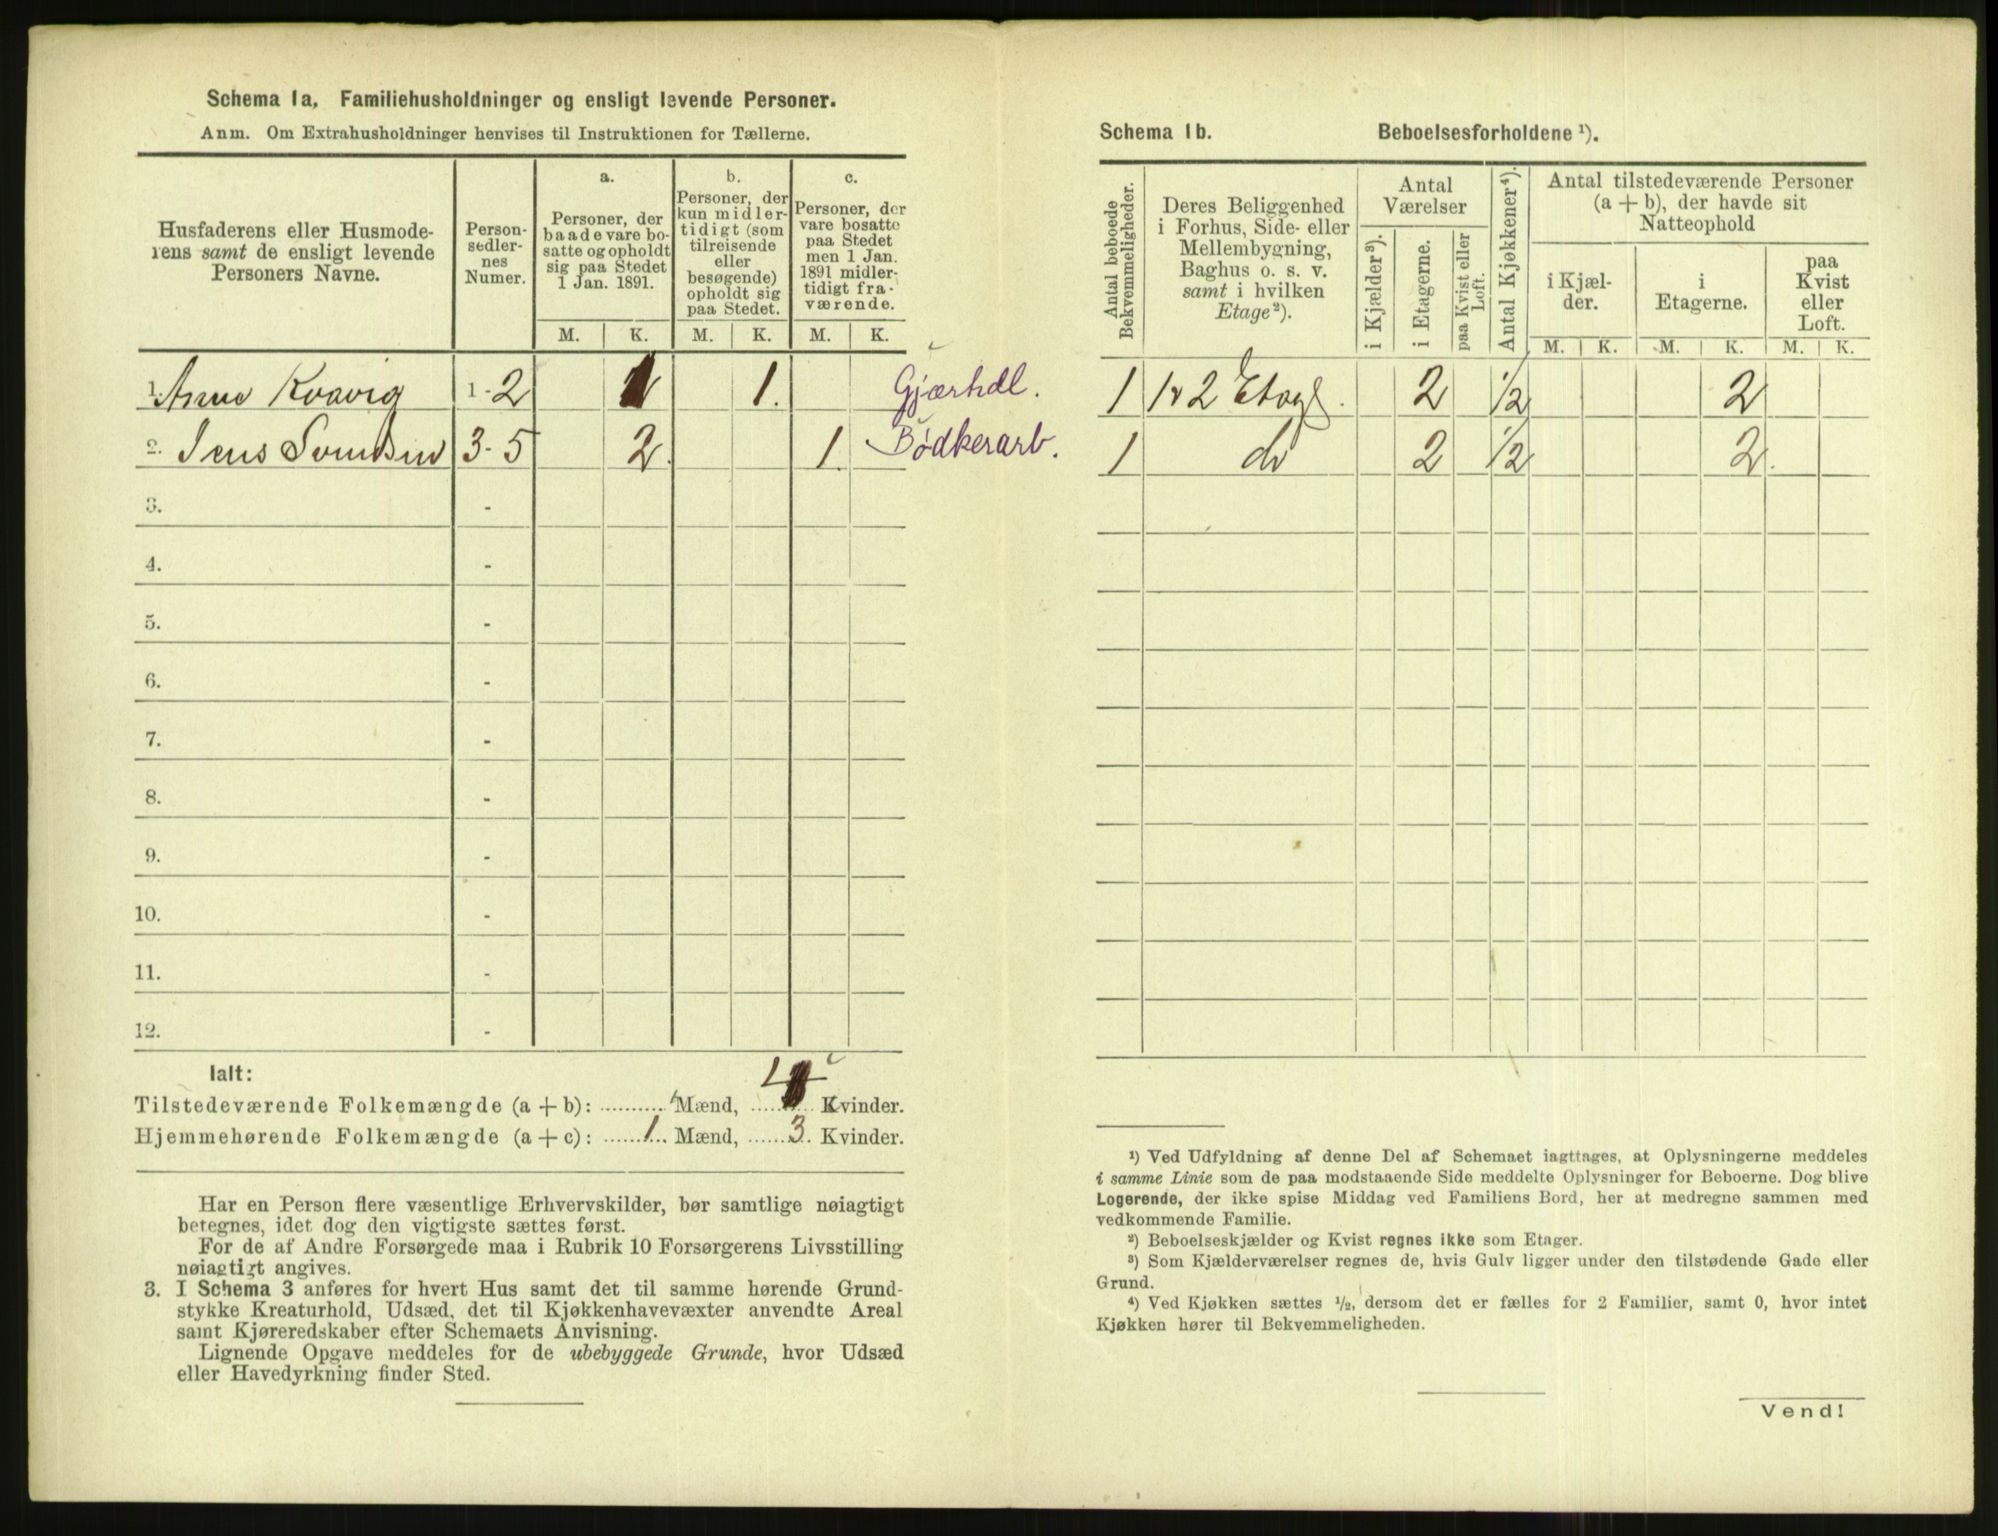 Schema 1a, Familiehusholdninger og ensligt levende Personer.
Anm. Om Extrahusholdninger henvises til Instruktionen for Tællerne.
Husfaderens eller Husmode-
rens samt de ensligt levende
Personers Navne.
Person-
sedler-
nes
Numer.
a.
Personer, der
baade vare bo-
satte og opholdt
sig paa Stedet
1 Jan. 1891.
b.
Personer, der
kun midler-
tidigt (som
tilreisende
eller
besøgende)
opholdt sig
paa Stedet.
c.
Personer, der
vare bosatte
paa Stedet
men 1 Jan.
1891 midler-
tidigt fra-
værende.
M. K. M. K. M. K.
1. Anne Kvavig 1-2 1 1. Gjærhdl.
2. Jens Svendsen 3-5 2 1. Bödkerarb.
3. -
4. -
5. -
6. -
7. -
8. -
9. -
10. -
11. -
12. -
Ialt:
Tilstedeværende Folkemængde (a + b): .......... Mænd, 4 Kvinder.
Hjemmehørende Folkemængde (a + c): ......1.. Mænd, ......3. Kvinder.
Har en Person flere væsentlige Erhvervskilder, bør samtlige nøiagtigt
betegnes, idet dog den vigtigste sættes først.
For de af Andre Forsørgede maa i Rubrik 10 Forsørgerens Livsstilling
nøiagtigt angives.
3. I Schema 3 anføres for hvert Hus samt det til samme hørende Grund-
stykke Kreaturhold, Udsæd, det til Kjøkkenhavevæxter anvendte Areal
samt Kjøreredskaber efter Schemaets Anvisning.
Lignende Opgave meddeles for de ubebyggede Grunde, hvor Udsæd
eller Havedyrkning finder Sted.
Schema 1b. Beboelsesforholdene ¹).
Antal beboede
Bekvemmeligheder.
Deres Beliggenhed
i Forhus, Side- eller
Mellembygning,
Baghus o. s. v.
samt i hvilken
Etage²).
Antal
Værelser
i Kjælder³).
i Etagerne.
paa Kvist eller
Loft.
Antal Kjøkkener⁴).
Antal tilstedeværende Personer
(a + b), der havde sit
Natteophold
i Kjæl-
der.
i
Etagerne.
paa
Kvist
eller
Loft.
M. K. M. K. M. K.
1 2 Etage. 2 1/2 2
1 do 2 1/2 2.
¹) Ved Udfyldning af denne Del af Schemaet iagttages, at Oplysningerne meddeles
i samme Linie som de paa modstaaende Side meddelte Oplysninger for Beboerne. Dog blive
Logerende, der ikke spise Middag ved Familiens Bord, her at medregne sammen med
vedkommende Familie.
²) Beboelseskjælder og Kvist regnes ikke som Etager.
³) Som Kjælderværelser regnes de, hvis Gulv ligger under den tilstødende Gade eller
Grund.
⁴) Ved Kjøkken sættes ½, dersom det er fælles for 2 Familier, samt 0, hvor intet
Kjøkken hører til Bekvemmeligheden.
Vend!